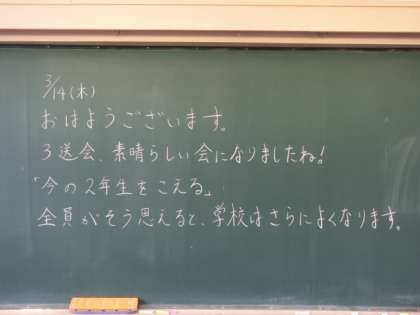 3/14(木)
おはようございます。
3送会、素晴らしい会になりましたね!
「今の2年生をこえる」
全員がそう思えると、学校はさらによくなります。